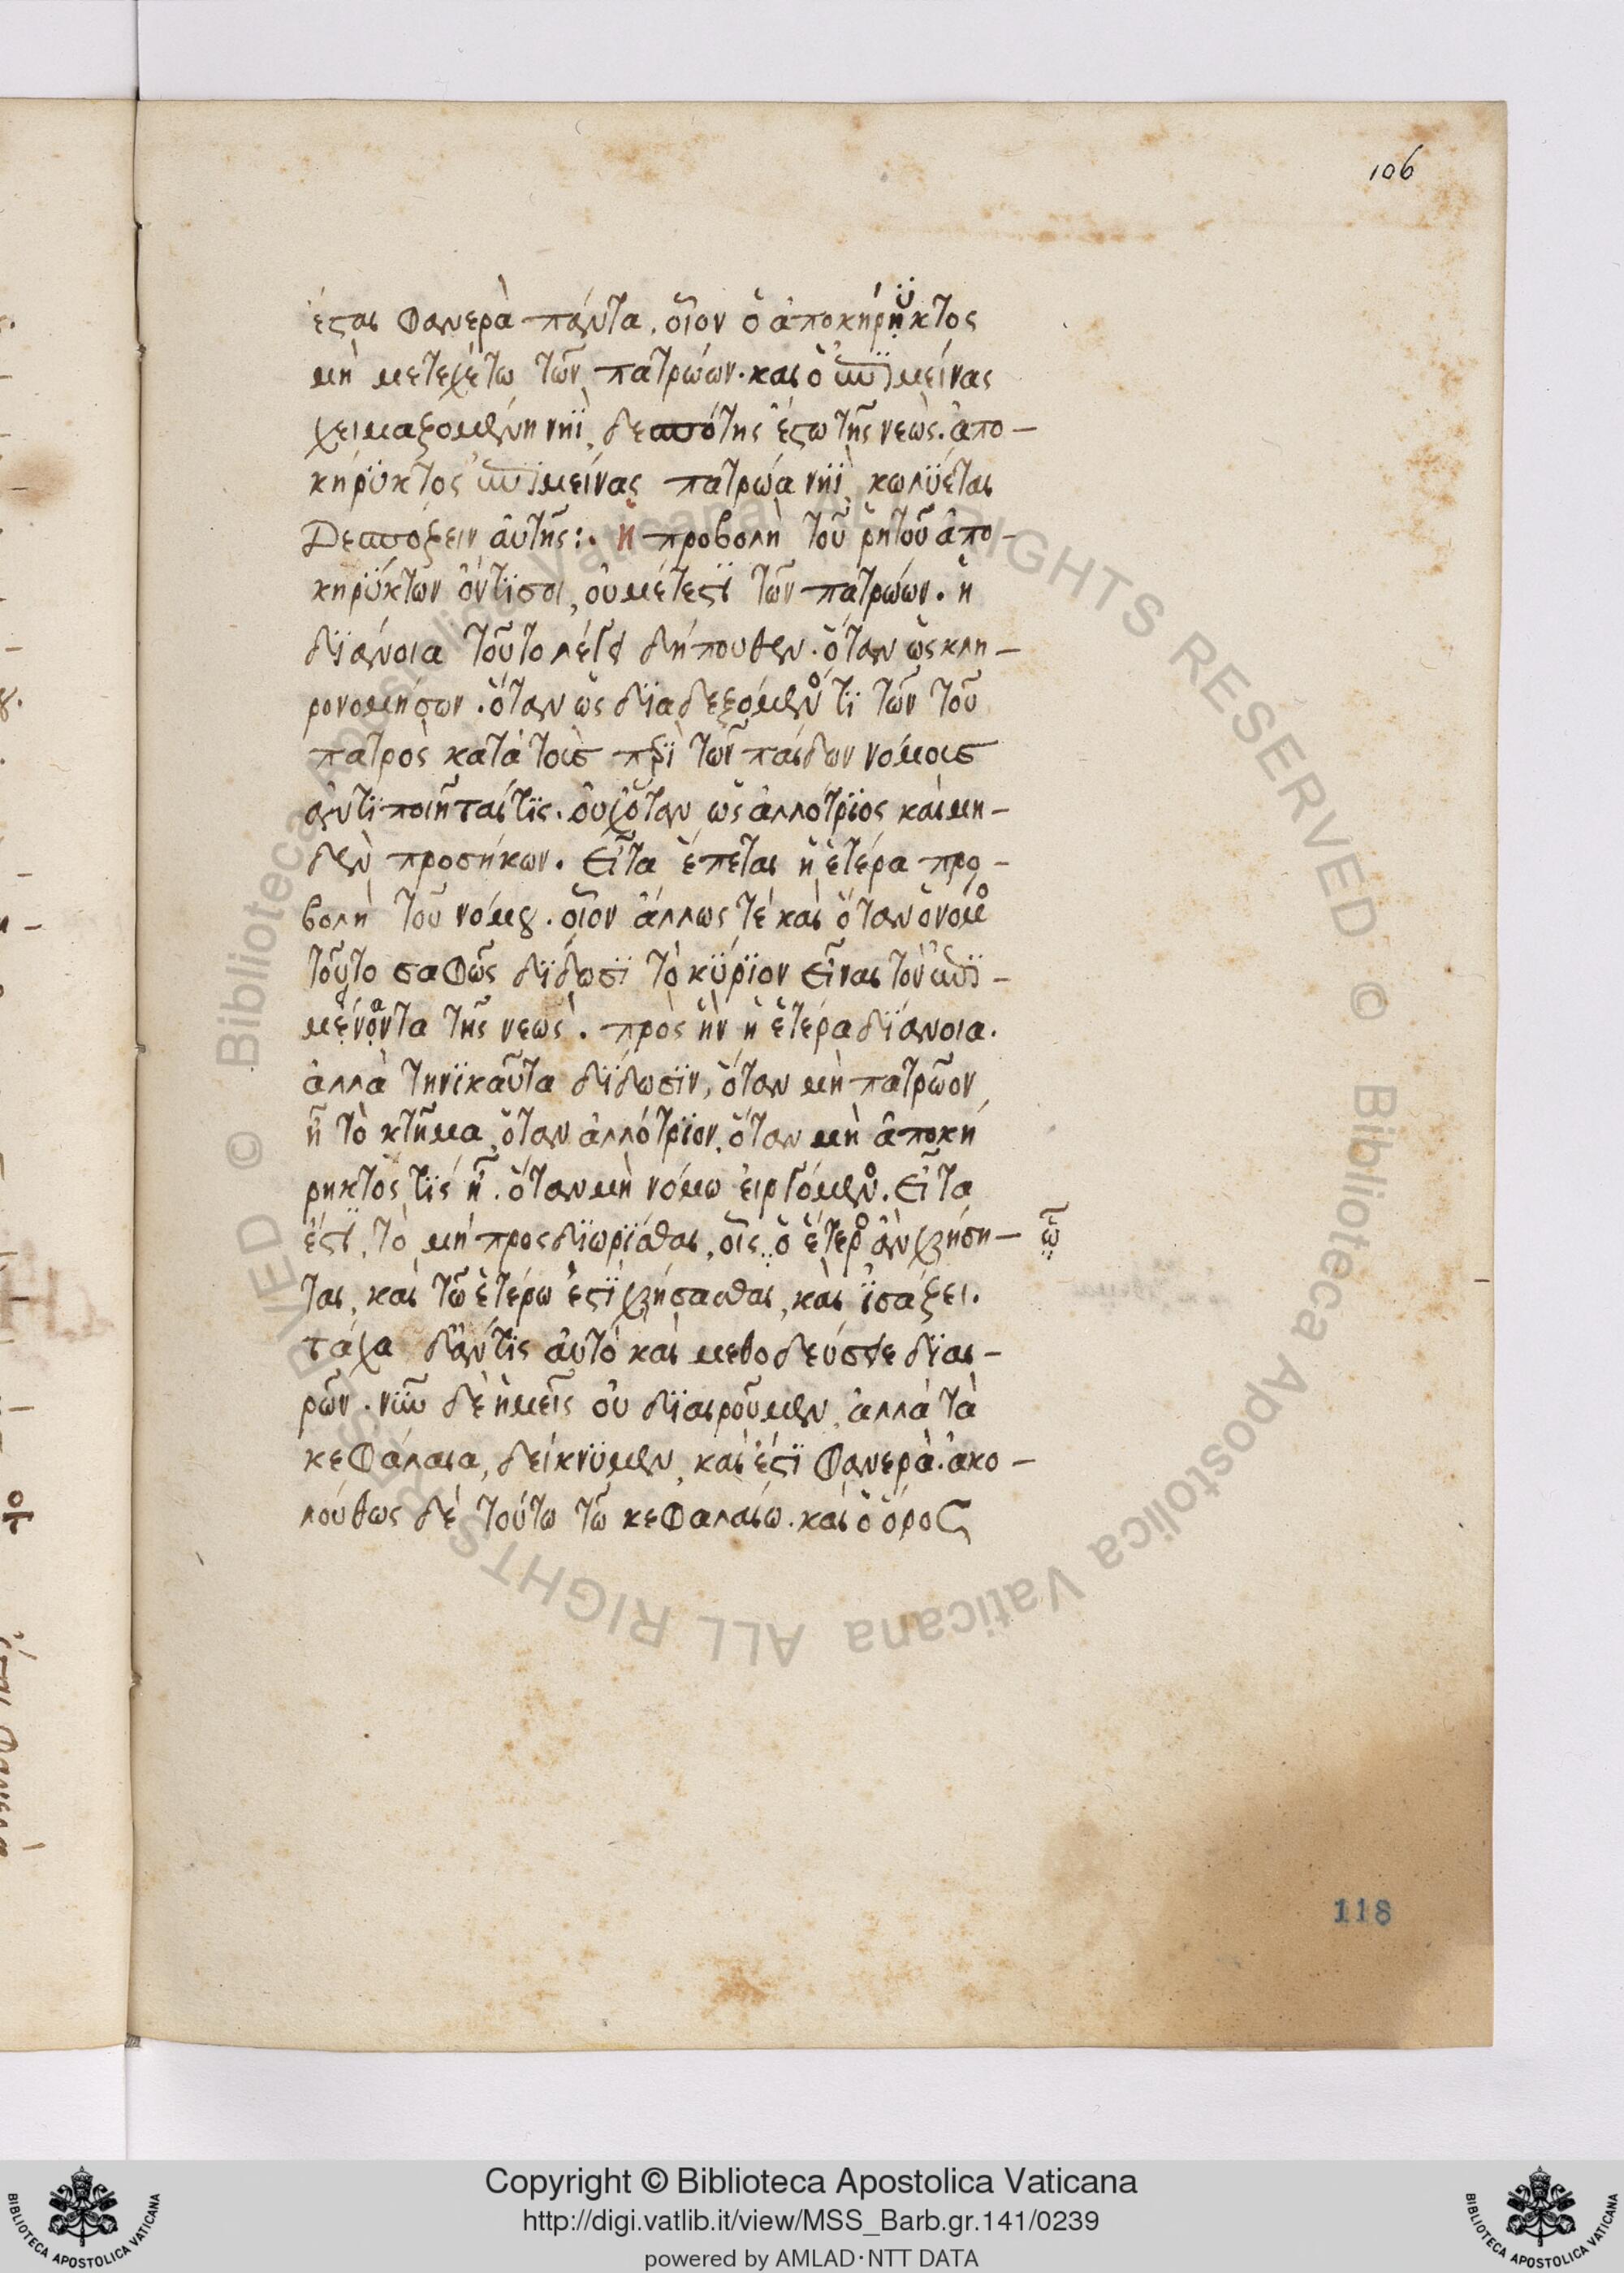 106
ἔσται φανερὰ πάντα. οἷον ὁ ἀποκήρηκτος
μὴ μετεχέτω τῶν πατρώων. καὶ ὁ ὑπομείνας
χειμαζομένη νηῒ, δεσπότης ἔστω τῆς νεώς. ἀπο-
κήρϋκτος ὑπομείνας πατρώα νηῒ κωλϋεται
Δεσπόζειν αὐτῆς:. ἡ προβολὴ τοῦ ῥητοῦ ἀπο-
κηρϋκτων ὄντϊ σοι, οὐ μέτεστϊ τῶν πατρώων. ἡ
δϊάνοια τοῦτο λέγει δήπουθεν. ὅταν ὡς κλη-
ρονομήσων. ὅταν ὡς δϊαδεξόμενός τϊ τῶν τοῦ
πατρὸς κατὰ τοὺς περὶ τῶν παίδων νόμους
ἀντϊποιῆται τϊς. οὐχ ὅταν ὡς ἀλλότρϊος καὶ μη-
δὲν προσήκων. Εἶτα ἕπεται ἡ ἑτέρα προ-
βολὴ τοῦ νόμου. οἷον ἄλλως τὲ καὶ ὅταν ὁ νόμος
τοῦτο σαφῶς δϊδωσϊ τὸ κϋρϊον εἶναι τὸν ὑπο-
μένοντα τῆς νεώς. πρὸς ἣν ἡ ἑτέρα δϊάνοια.
ἀλλὰ τηνϊκαῦτα δϊδωσϊν, ὅταν μὴ πατρῶον
ἦ τὸ κτῆμα, ὅταν ἀλλότρϊον, ὅταν μὴ ἀποκή
ρηκτός τϊς ἦ. ὅταν μὴ νόμω εἰργόμενος. Εἶτα
ἐστϊ, τὸ μὴ προσδϊωρϊσθαι, οἷς ὁ ἕτερος ἂν χρήση- ὧ
ται, καὶ τῶ ἑτέρω ἐστϊ χρήσασθαι, καὶ ϊσάζει.
τάχα δ' ἄν τϊς αὐτὸ καὶ μεθοδεύσειε δϊαι-
ρῶν. νῦν δὲ ἡμεῖς οὐ δϊαιροῦμεν, ἀλλὰ τὰ
κεφάλαια, δείκνϋμεν, καὶ ἐστϊ φανερὰ. ἀκο-
λούθως δὲ τούτω τῶ κεφαλαίω. καὶ ὁ ὅρος
118
Copyright © Biblioteca Apostolica Vaticana
http://digi.vatlib.it/view/MSS_Barb.gr.141/0239
powered by AMLAD·NTT DATA